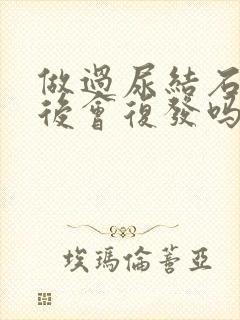 做過尿結石
後會復發嗎
埃瑪倫薈亞